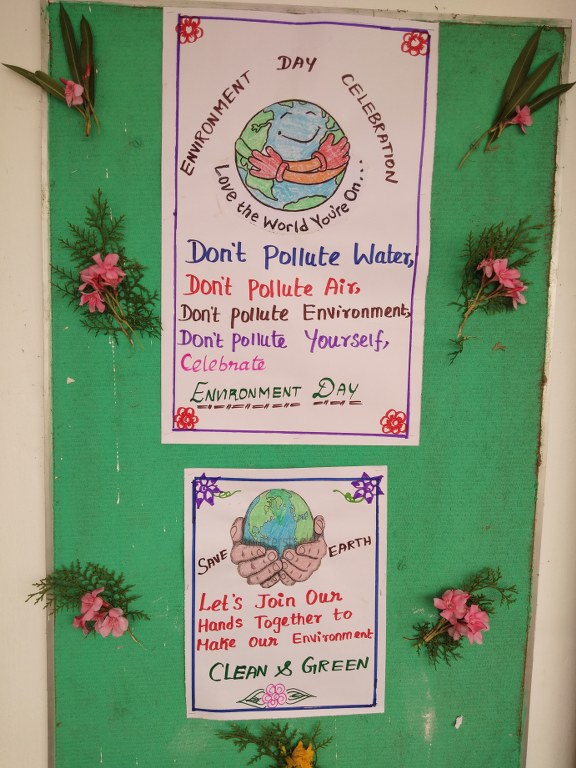 ENVIRONMENT DAY CELEBRATION
Love the World You're On...
Don't Pollute Water,
Don't Pollute Air,
Don't pollute Environment,
Don't pollute Yourself,
Celebrate
ENVIRONMENT DAY
SAVE EARTH
Let's Join Our
Hands Together to
Make Our Environment
CLEAN & GREEN